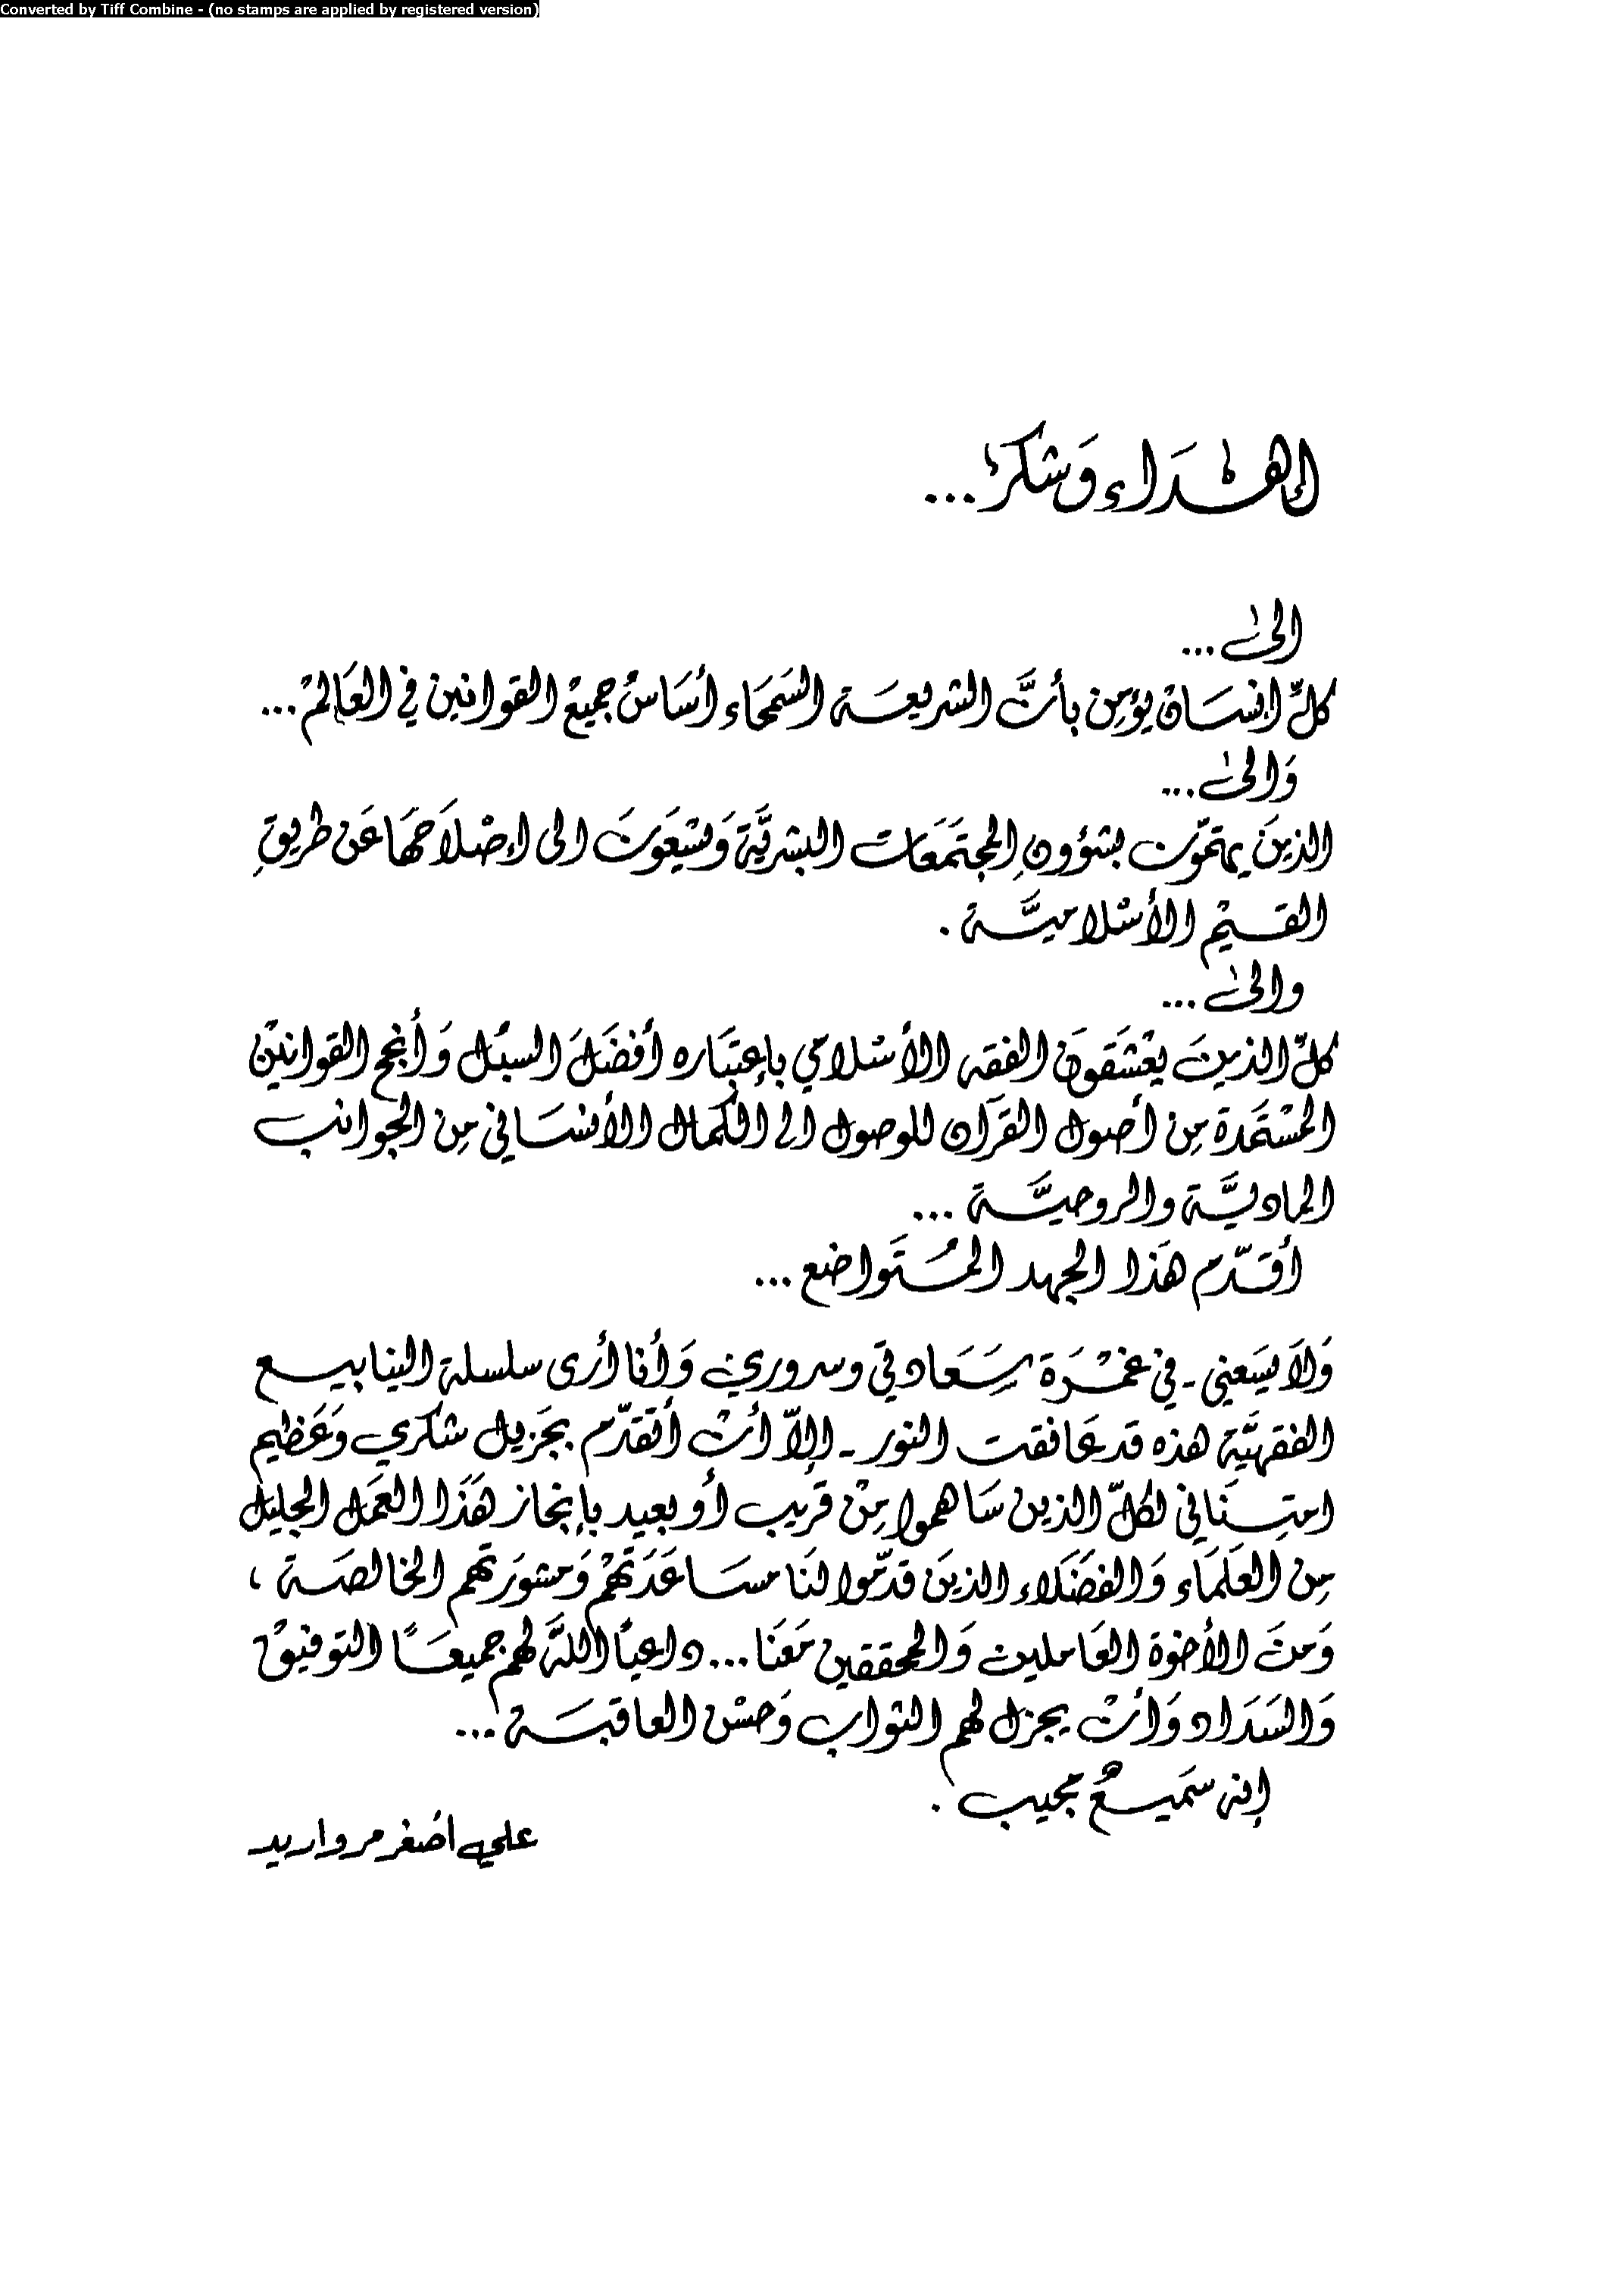 Converted by Tiff Combine - (no stamps are applied by registered version)
إهداء وشكر...
الى...
كلّ إنسان يؤمن بأنَّ الشريعة السَمحَاء أسَاسُ جميع القوانين في العَالم...
وَالى...
الذينَ يهتمّون بشؤونِ المجتمَعَات البشريَّة وَيسْعَونَ الى إصْلاَحهَا عَن طريقِ
القيم الأسْلاميَّة .
والى...
كلّ الذينَ يعْشَقونَ الفقه الأسْلامي بإعتبَاره أفضَلَ السبُل وَأنجح القوانينْ
المسْتمَدة مِن أصول القرآن للوصول الى الكمال الأنسَاني مِن الجوانب
الماديَّة والروحيَّة ...
أقدّم هَذا الجهد المُتَواضع ...
وَلاَ يسَعني - في غمْرَة سَعَادتي وسروري وَأنا أرى سلسلة الينابيع
الفقهيَّة هذه قد عَانقت النور - إلاّ أنْ أتقدّم بجَزيل شكري وَعَظيم
امتِنَاني لكلّ الذين سَاهموا مِنْ قريب أو بعيد بإنجاز هَذَا العمَل الجليل
مِن العلَمَاء وَالفضَلاء الذينَ قدّموا لنَا مسَاعَدَتهمْ وَمشورَتهم الخالصَة ،
وَمنَ الأخوة العَاملين وَالمحققين مَعَنا ... داعياً اللهَ لهم جميعَاً التوفيقْ
وَالسَدَاد وَأنْ يجزل لهم الثواب وَحسْن العاقبَة ...
إنه سَميعٌ مجيب .
علي اصْغر مرواريد